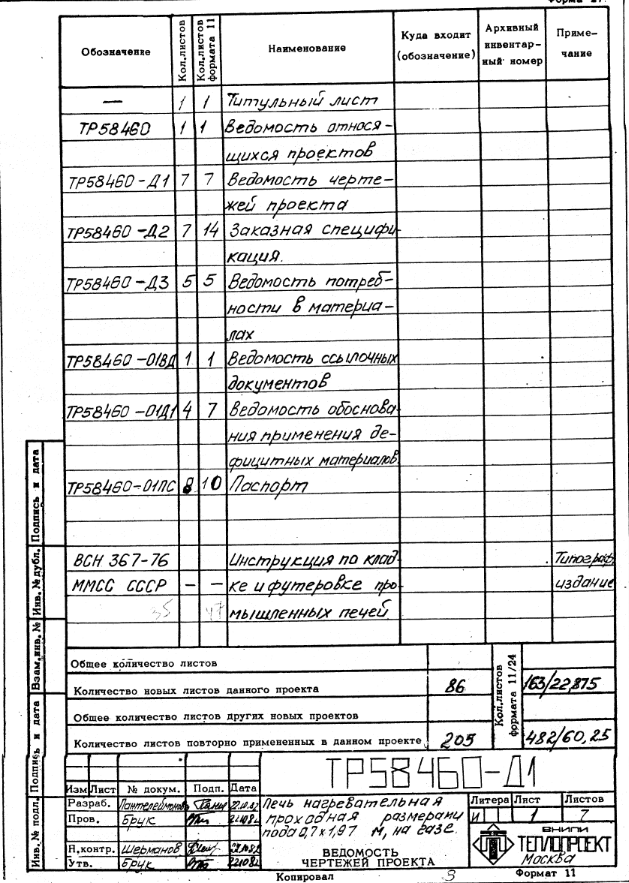 Форма 2Г
Обозначение Кол.листов Кол.листов формата 11 Наименование Куда входит (обозначение) Архивный инвентарный номер Приме-чание
— 1 1 Титульный лист
ТР58460 1 1 Ведомость относя-
щихся проектов
ТР58460-Д1 7 7 Ведомость черте-
жей проекта
ТР58460-Д2 7 14 Заказная специфи-
кация.
ТР58460-Д3 5 5 Ведомость потреб-
ности в материа-
лах
ТР58460-01ВД 1 1 Ведомость ссылочных
документов
ТР58460-01Д1 4 7 Ведомость обоснова
ния применения де-
фицитных материалов
ТР58460-01ПС 8 10 Паспорт
ВСН 367-76 Инструкция по клад Типограф.
ММСС СССР — — ке и футеровке про издание
35 47 мышленных печей
Общее количество листов
Количество новых листов данного проекта 86 163/22,875
Общее количество листов других новых проектов
Количество листов повторно примененных в данном проекте 205 482/60,25
Кол.листов формата 11/24
ТР58460-Д1
Изм Лист № докум. Подп. Дата
Разраб. Пантелеймонов
Пров. Брук
Н.контр. Шерманов
Утв. Брук
Печь нагревательная
проходная размерами
пода 0,7х1,97 м, на газе.
ВЕДОМОСТЬ
ЧЕРТЕЖЕЙ ПРОЕКТА
Литера Лист Листов
И 1 7
ВНИПИ
ТЕПЛОПРОЕКТ
Москва
Копировал З Формат 11
Инв. № подл. Подпись и дата Взам.инв. № Инв. № дубл. Подпись и дата